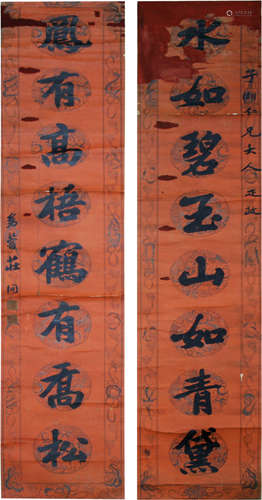 子湘仁兄大人正政
水如碧玉山如青黛
鳳有高梧鶴有喬松
莊冋